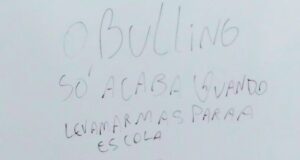 O BULLING
SÓ ACABA QUANDO
LEVAM ARMAS PARAA
ESCOLA